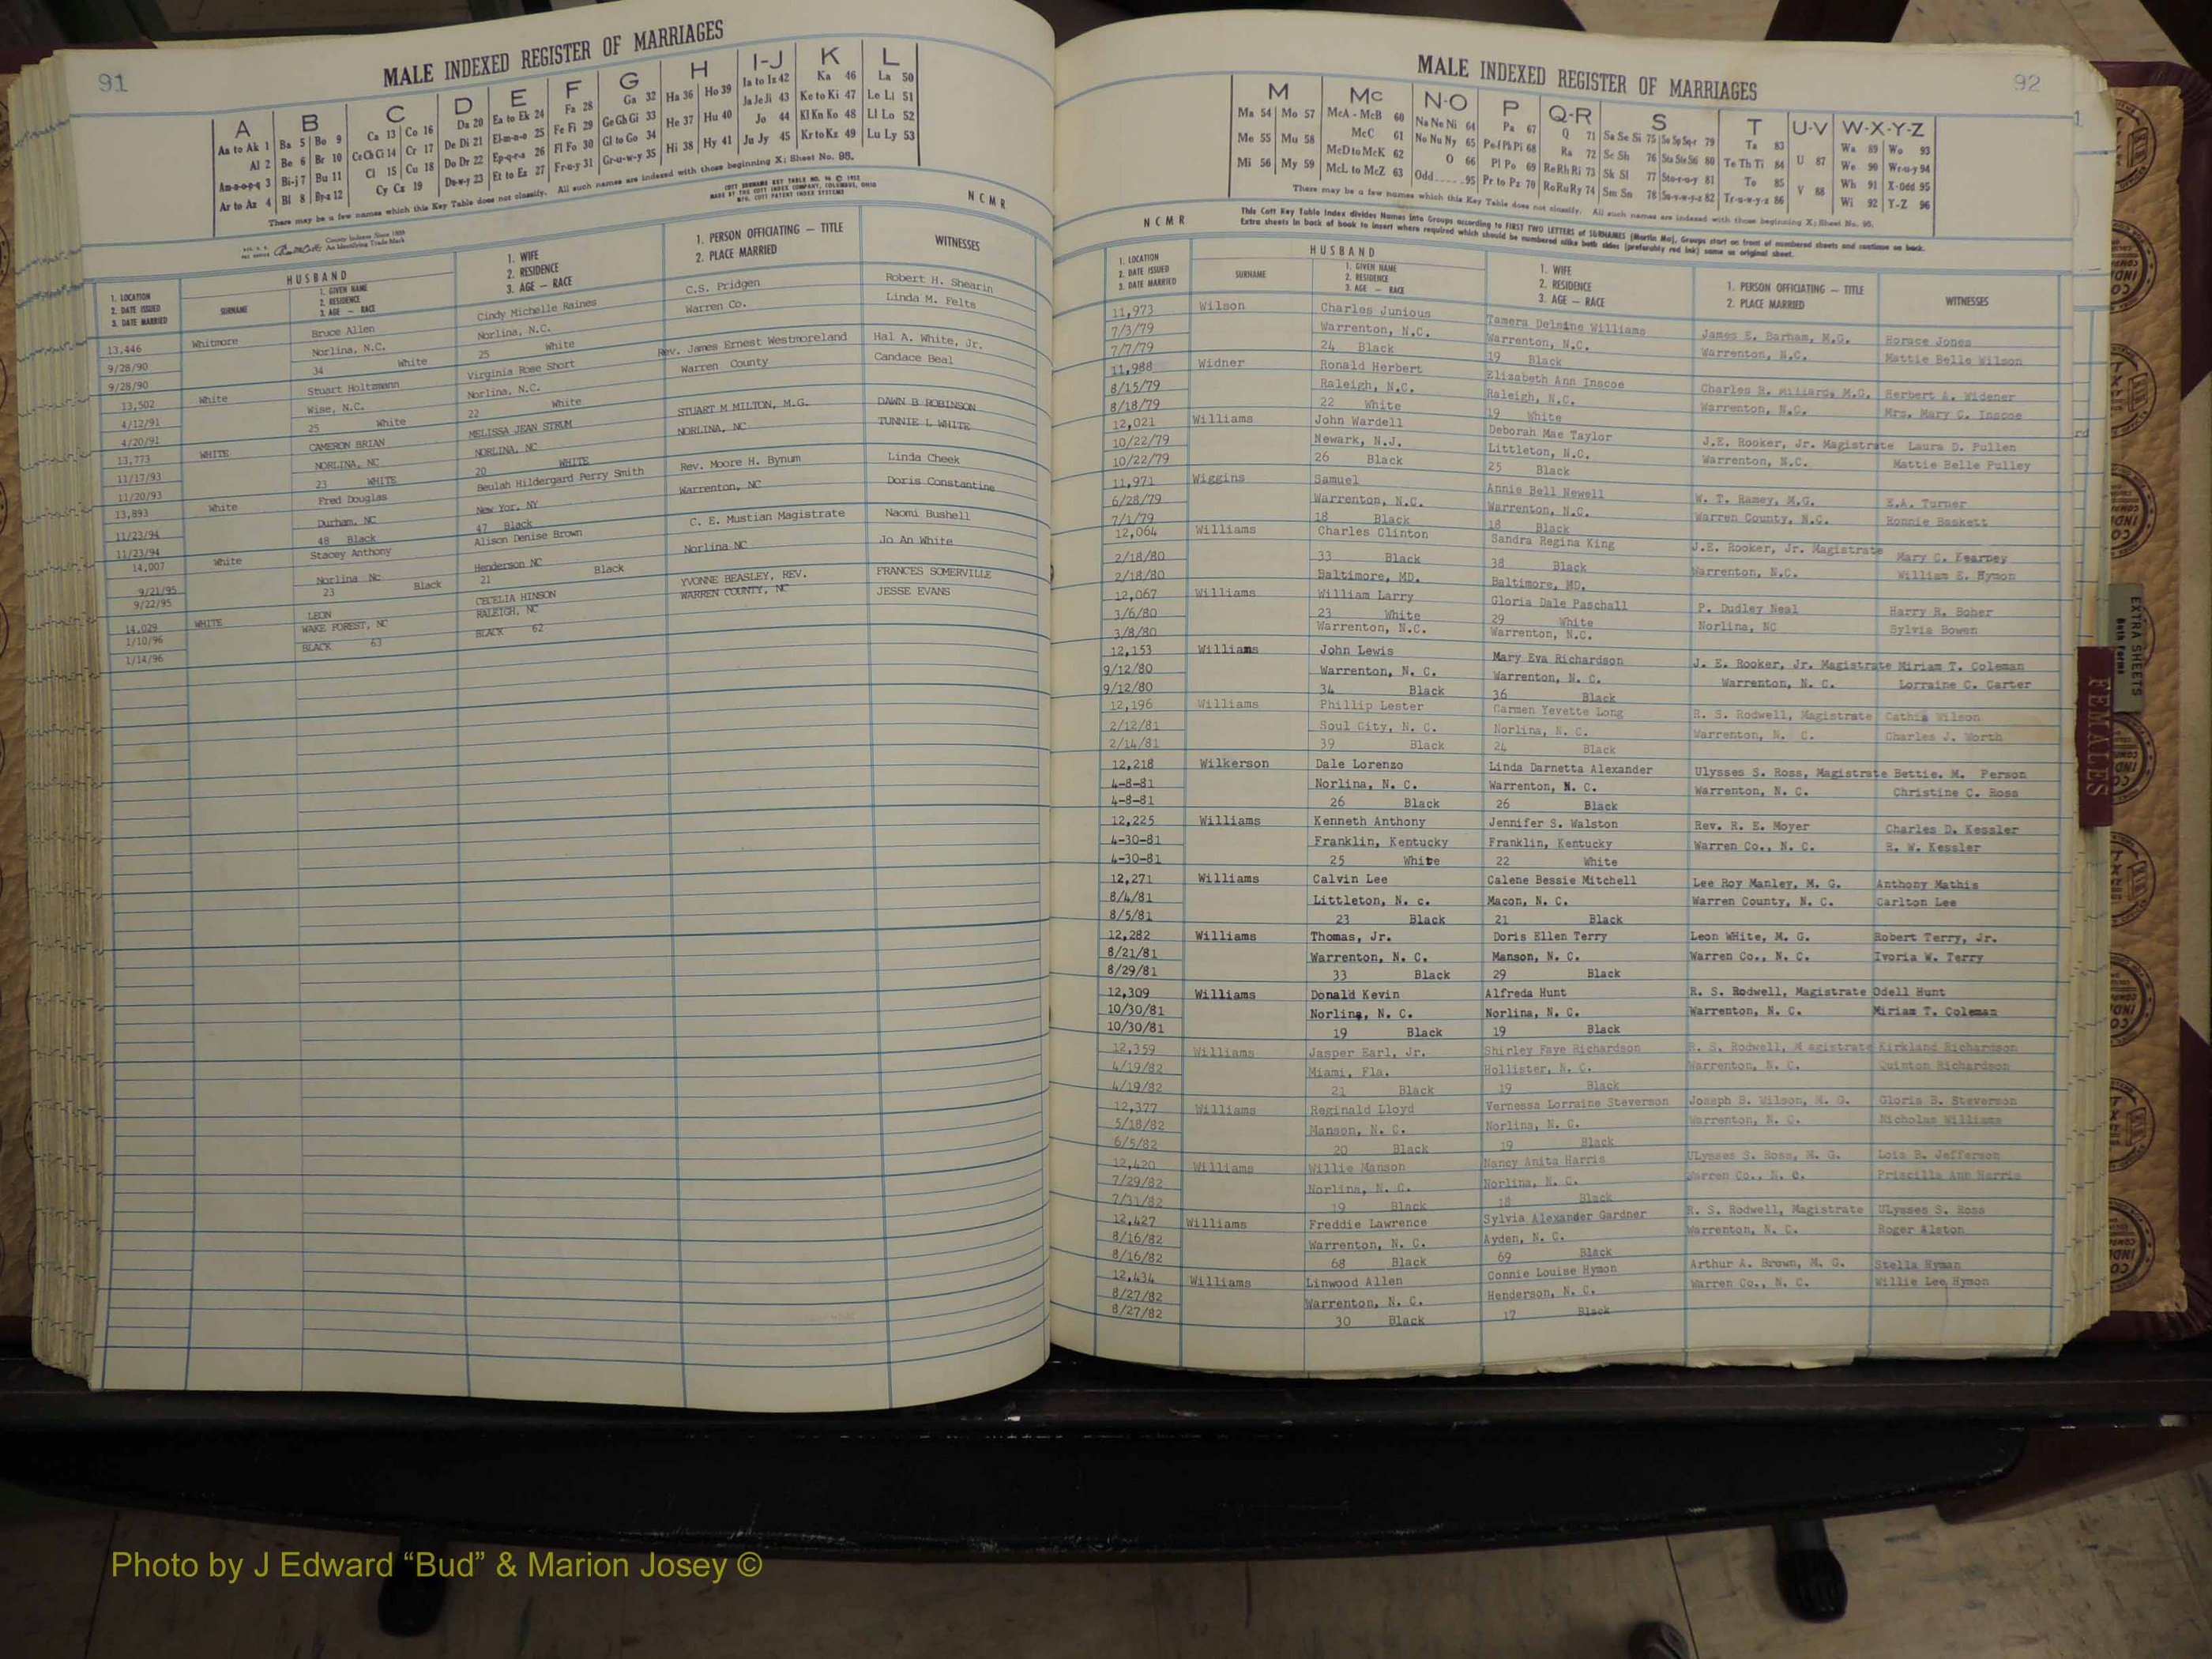 91
MALE INDEXED REGISTER OF MARRIAGES
A B C D E F G H I-J K L
Aa to Ak 1 Ba 5 Bo 9 Ca 13 Co 16 Da 20 Ea to Ek 24 Fa 28 Ga 32 Ha 36 Ho 39 Ia to Iz 42 Ka 46 La 50
Al 2 Be 6 Br 10 Ce Ch Ci 14 Cr 17 De Di 21 El-m-n-o 25 Fe Fi 29 Ge Gh Gi 33 He 37 Hu 40 Ja Je Ji 43 Ke to Ki 47 Le Li 51
Am-n-o-p-q 3 Bi-j 7 Bu 11 Cl 15 Cu 18 Do Dr 22 Ep-q-r-s 26 Fl Fo 30 Gl to Go 34 Hi 38 Hy 41 Jo 44 Kl Kn Ko 48 Ll Lo 52
Ar to Az 4 Bl 8 By-z 12 Cy Cz 19 Du-w-y 23 Et to Ez 27 Fr-u-y 31 Gr-u-w-y 35 Ju Jy 45 Kr to Kz 49 Lu Ly 53
There may be a few names which this Key Table does not classify. All such names are indexed with those beginning X; Sheet No. 95.
County Indexes Since 1888
An Identifying Trade Mark
COTT SURNAME KEY TABLE NO. 96 © 1952
MADE BY THE COTT INDEX COMPANY, COLUMBUS, OHIO
MFG. COTT PATENT INDEX SYSTEMS
NCMR
1. LOCATION
2. DATE ISSUED
3. DATE MARRIED
HUSBAND
SURNAME
1. GIVEN NAME
2. RESIDENCE
3. AGE — RACE
1. WIFE
2. RESIDENCE
3. AGE — RACE
1. PERSON OFFICIATING — TITLE
2. PLACE MARRIED
WITNESSES
13,446 Whitmore Bruce Allen Cindy Michelle Raines C.S. Pridgen Robert H. Shearin
9/28/90 Norlina, N.C. Norlina, N.C. Warren Co. Linda M. Felts
9/28/90 34 White 25 White
13,502 White Stuart Holtzmann Virginia Rose Short Rev. James Ernest Westmoreland Hal A. White, Jr.
4/12/91 Wise, N.C. Norlina, N.C. Warren County Candace Beal
4/20/91 25 White 22 White
13,773 WHITE CAMERON BRIAN MELISSA JEAN STRUM STUART M MILTON, M.G. DAWN B ROBINSON
11/17/93 NORLINA, NC NORLINA, NC NORLINA, NC TUNNIE L WHITE
11/20/93 23 WHITE 20 WHITE
13,893 White Fred Douglas Beulah Hildergard Perry Smith Rev. Moore H. Bynum Linda Cheek
11/23/94 Durham, NC New Yor, NY Warrenton, NC Doris Constantine
11/23/94 48 Black 47 Black
14,007 White Stacey Anthony Alison Denise Brown C. E. Mustian Magistrate Naomi Bushell
9/21/95 Norlina Nc Henderson NC Norlina NC Jo An White
9/22/95 23 Black 21 Black
14,029 WHITE LEON CECELIA HINSON YVONNE BEASLEY, REV. FRANCES SOMERVILLE
1/10/96 WAKE FOREST, NC RALEIGH, NC WARREN COUNTY, NC JESSE EVANS
1/14/96 BLACK 63 BLACK 62
MALE INDEXED REGISTER OF MARRIAGES
92
M Mc N-O P Q-R S T U-V W-X-Y-Z
Ma 54 Mo 57 McA - McB 60 Na Ne Ni 64 Pa 67 Q 71 Sa Se Si 75 So Sp Sq-r 79 Ta 83 Wa 89 Wo 93
Me 55 Mu 58 McC 61 No Nu Ny 65 Pe-f Ph Pi 68 Ra 72 Sc Sh 76 Sta Ste Sti 80 Te Th Ti 84 U 87 We 90 Wr-u-y 94
Mi 56 My 59 McD to McK 62 O 66 Pl Po 69 Re Rh Ri 73 Sk Sl 77 Sto-r-u-y 81 To 85 Wh 91 X-Odd 95
McL to McZ 63 Odd 95 Pr to Pz 70 Ro Ru Ry 74 Sm Sn 78 Su-v-w-y-z 82 Tr-u-w-y-z 86 V 88 Wi 92 Y-Z 96
There may be a few names which this Key Table does not classify. All such names are indexed with those beginning X; Sheet No. 95.
This Cott Key Table Index divides Names into Groups according to FIRST TWO LETTERS of SURNAMES (Martin Ma), Groups start on front of numbered sheets and continue on back.
Extra sheets in back of book to insert where required which should be numbered alike both sides (preferably red ink) same as original sheet.
NCMR
1. LOCATION
2. DATE ISSUED
3. DATE MARRIED
HUSBAND
SURNAME
1. GIVEN NAME
2. RESIDENCE
3. AGE — RACE
1. WIFE
2. RESIDENCE
3. AGE — RACE
1. PERSON OFFICIATING — TITLE
2. PLACE MARRIED
WITNESSES
11,973 Wilson Charles Junious Tamera Delmine Williams James E. Barham, M.G. Horace Jones
7/3/79 Warrenton, N.C. Warrenton, N.C. Warrenton, N.C. Mattie Belle Wilson
7/7/79 24 Black 19 Black
11,988 Widner Ronald Herbert Elizabeth Ann Inscoe Charles R. Millard, M.G. Herbert A. Widener
8/15/79 Raleigh, N.C. Raleigh, N.C. Warrenton, N.C. Mrs. Mary C. Inscoe
8/18/79 22 White 19 White
12,021 Williams John Wardell Deborah Mae Taylor J.E. Rooker, Jr. Magistrate Laura D. Pullen
10/22/79 Newark, N.J. Littleton, N.C. Warrenton, N.C. Mattie Belle Pulley
10/22/79 26 Black 25 Black
11,971 Wiggins Samuel Annie Bell Newell W. T. Ramey, M.G. E.A. Turner
6/28/79 Warrenton, N.C. Warrenton, N.C. Warren County, N.C. Ronnie Baskett
7/1/79 18 Black 18 Black
12,064 Williams Charles Clinton Sandra Regina King J.E. Rooker, Jr. Magistrate Mary C. Kearney
2/18/80 33 Black 38 Black Warrenton, N.C. William E. Hymon
2/18/80 Baltimore, MD. Baltimore, MD.
12,067 Williams William Larry Gloria Dale Paschall P. Dudley Neal Harry R. Bober
3/6/80 23 White 29 White Norlina, NC Sylvia Bowen
3/8/80 Warrenton, N.C. Warrenton, N.C.
12,153 Williams John Lewis Mary Eva Richardson J. E. Rooker, Jr. Magistrate Miriam T. Coleman
9/12/80 Warrenton, N. C. Warrenton, N. C. Warrenton, N. C. Lorraine C. Carter
9/12/80 34 Black 36 Black
12,196 Williams Phillip Lester Carmen Yevette Long R. S. Rodwell, Magistrate Cathia Wilson
2/12/81 Soul City, N. C. Norlina, N. C. Warrenton, N. C. Charles J. Worth
2/14/81 39 Black 24 Black
12,218 Wilkerson Dale Lorenzo Linda Darnetta Alexander Ulysses S. Ross, Magistrate Bettie. M. Person
4-8-81 Norlina, N. C. Warrenton, N. C. Warrenton, N. C. Christine C. Ross
4-8-81 26 Black 26 Black
12,225 Williams Kenneth Anthony Jennifer S. Walston Rev. R. E. Moyer Charles D. Kessler
4-30-81 Franklin, Kentucky Franklin, Kentucky Warren Co., N. C. R. W. Kessler
4-30-81 25 White 22 White
12,271 Williams Calvin Lee Calene Bessie Mitchell Lee Roy Manley, M. G. Anthony Mathis
8/4/81 Littleton, N. c. Macon, N. C. Warren County, N. C. Carlton Lee
8/5/81 23 Black 21 Black
12,282 Williams Thomas, Jr. Doris Ellen Terry Leon WHite, M. G. Robert Terry, Jr.
8/21/81 Warrenton, N. C. Manson, N. C. Warren Co., N. C. Ivoria W. Terry
8/29/81 33 Black 29 Black
12,309 Williams Donald Kevin Alfreda Hunt R. S. Rodwell, Magistrate Odell Hunt
10/30/81 Norlina, N. C. Norlina, N. C. Warrenton, N. C. Miriam T. Coleman
10/30/81 19 Black 19 Black
12,359 Williams Jasper Earl, Jr. Shirley Faye Richardson R. S. Rodwell, M agistrate Kirkland Richardson
4/19/82 Miami, Fla. Hollister, N. C. Warrenton, N. C. Quinton Richardson
4/19/82 21 Black 19 Black
12,377 Williams Reginald Lloyd Vernessa Lorraine Steverson Joseph B. Wilson, M. G. Gloria B. Steverson
5/18/82 Manson, N. C. Norlina, N. C. Warrenton, N. C. Nicholas Williams
6/5/82 20 Black 19 Black
12,420 Williams Willie Manson Nancy Anita Harris ULysses S. Ross, M. G. Lois B. Jefferson
7/29/82 Norlina, N. C. Norlina, N. C. Warren Co., N. C. Priscilla Ann Harris
7/31/82 19 Black 18 Black
12,427 Williams Freddie Lawrence Sylvia Alexander Gardner R. S. Rodwell, Magistrate ULysses S. Ross
8/16/82 Warrenton, N. C. Ayden, N. C. Warrenton, N. C. Roger Alston
8/16/82 68 Black 69 Black
12,434 Williams Linwood Allen Connie Louise Hymon Arthur A. Brown, M. G. Stella Hyman
8/27/82 Warrenton, N. C. Henderson, N. C. Warren Co., N. C. Willie Lee Hymon
8/27/82 30 Black 17 Black
EXTRA SHEETS
Both Forms
FEMALES
Photo by J Edward “Bud” & Marion Josey ©